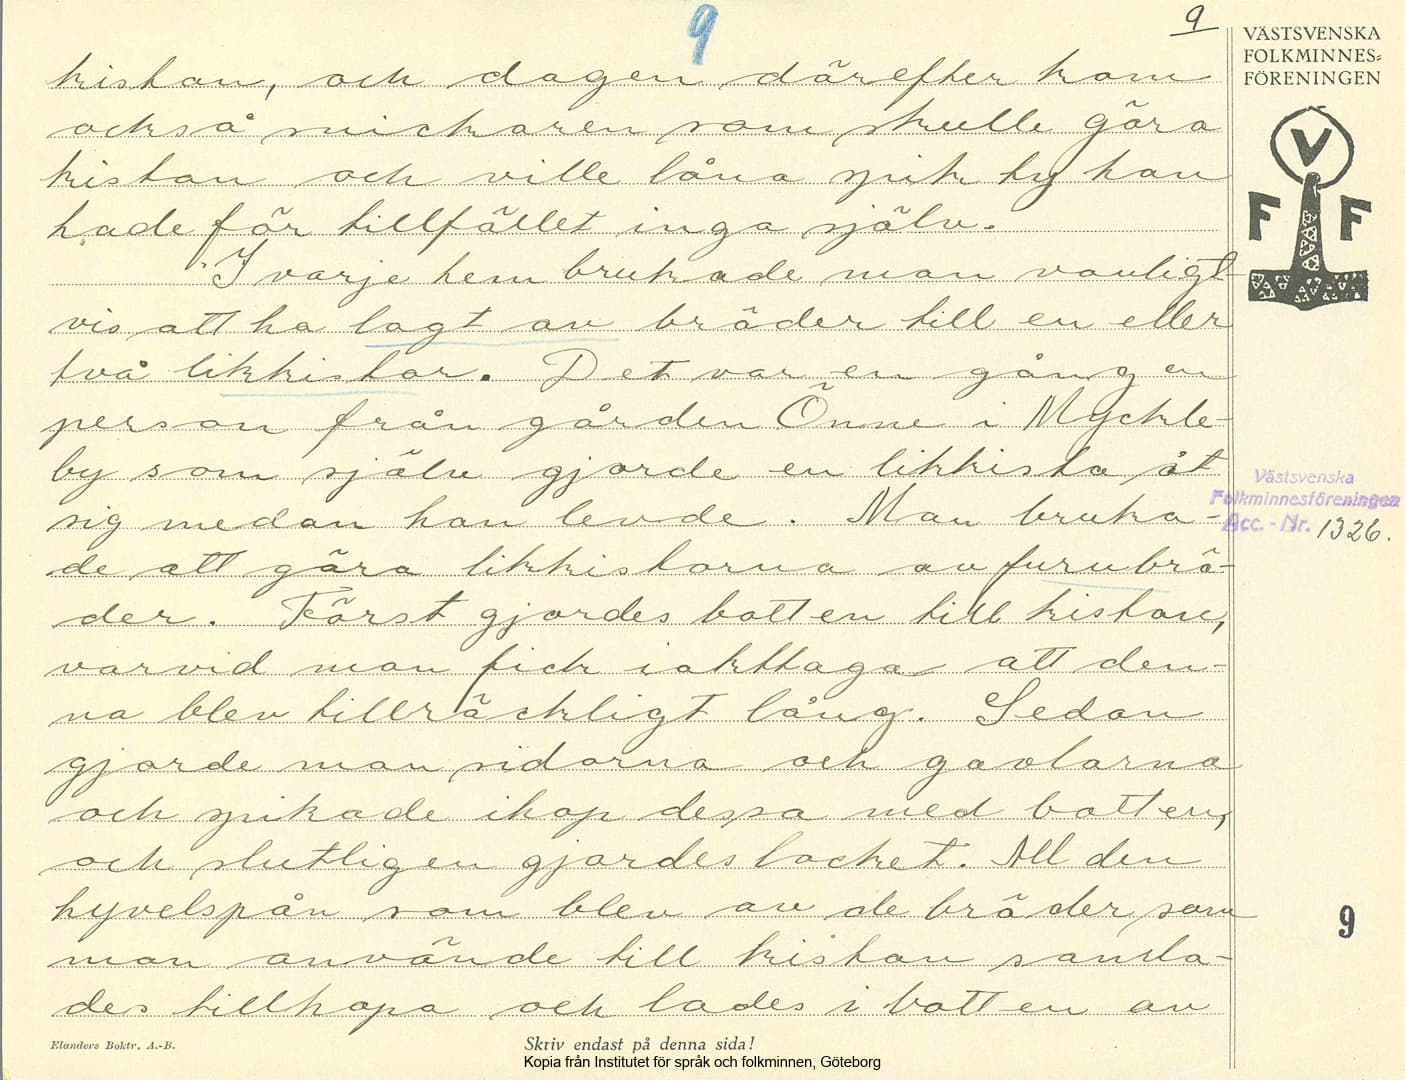 9
9
VÄSTSVENSKA
FOLKMINNES=
FÖRENINGEN
V
F F
kistan, och dagen därefter kom
också snickaren som skulle göra
kistan och ville låna spik ty han
hade för tillfället inga själv.
I varje hem brukade man vanligt-
vis att ha lagt av bräder till en eller
två likkistor. Det var en gång en
person från gården Önne i Myckle-
by som själv gjorde en likkista åt
sig medan han levde. Man bruka-
de att göra likkistorna av furubrä-
der. Först gjordes botten till kistan,
varvid man fick iakttaga att den-
na blev tillräckligt lång. Sedan
gjorde man sidorna och gavlarna
och spikade ihop dessa med botten,
och slutligen gjordes locket. All den
hyvelspån som blev av de bräder som
man använde till kistan samla-
des tillhopa och lades i botten av
Västsvenska
Folkminnesföreningen
Acc. - Nr. 1326.
9
Elanders Boktr. A.-B.
Skriv endast på denna sida!
Kopia från Institutet för språk och folkminnen, Göteborg